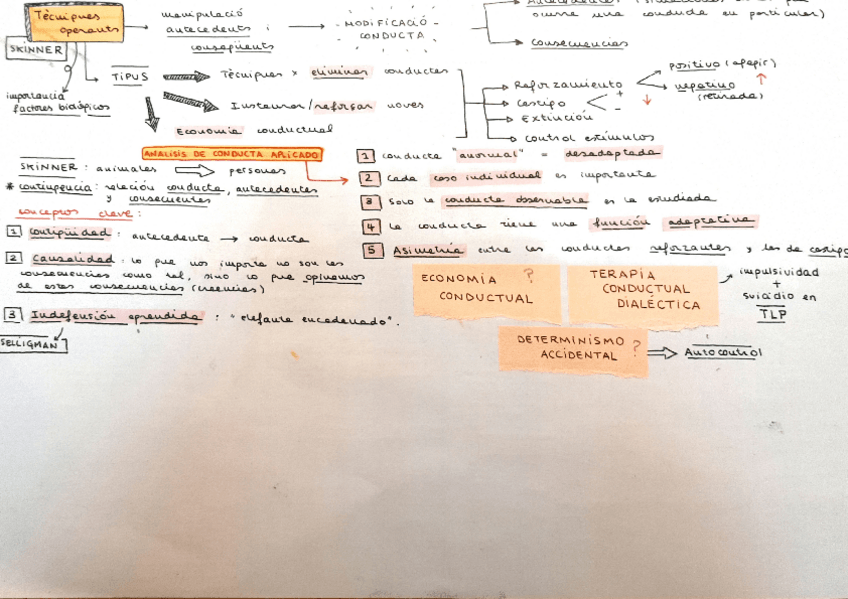 Tècniques operants
SKINNER
importancia factores biológicos
manipulació antecedents i consegüents
- MODIFICACIÓ -
CONDUCTA
ocurre una conducta en particular)
Consecuencias
TIPUS
Tècniques x eliminar conductes
Instaurar/reforçar noves
Economia conductual
Reforzamiento
positivo (afegir)
negativo (retirada)
Castigo + -
Extinción
Control estímulos
ANALISIS DE CONDUCTA APLICADO
SKINNER : animales personas
* contingencia: relación conducta, antecedentes
y consecuentes
conceptos clave:
1 Contigüidad : antecedente → conducta
2 Causalidad : lo que nos importa no son las
consecuencias como tal, sino lo que opinamos
de estas consecuencias (creencias)
3 Indefensión aprendida : "elefante encadenado".
SELLIGMAN
1 conducta "anormal" = desadaptada
2 Cada caso individual es importante
3 Solo la conducta observable es la estudiada
4 La conducta tiene una función adaptativa
5 Asimetría entre las conductas reforzantes y las de castigo
ECONOMÍA ?
CONDUCTUAL
TERAPIA
CONDUCTUAL
DIALÉCTICA
impulsividad
+
suicidio en
TLP
DETERMINISMO ?
ACCIDENTAL
Autocontrol